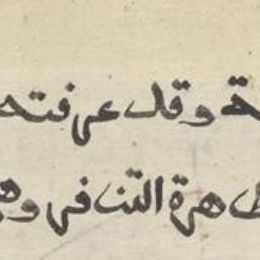 ة وقد عرفتـ
ظاهرة التنافر وهـ